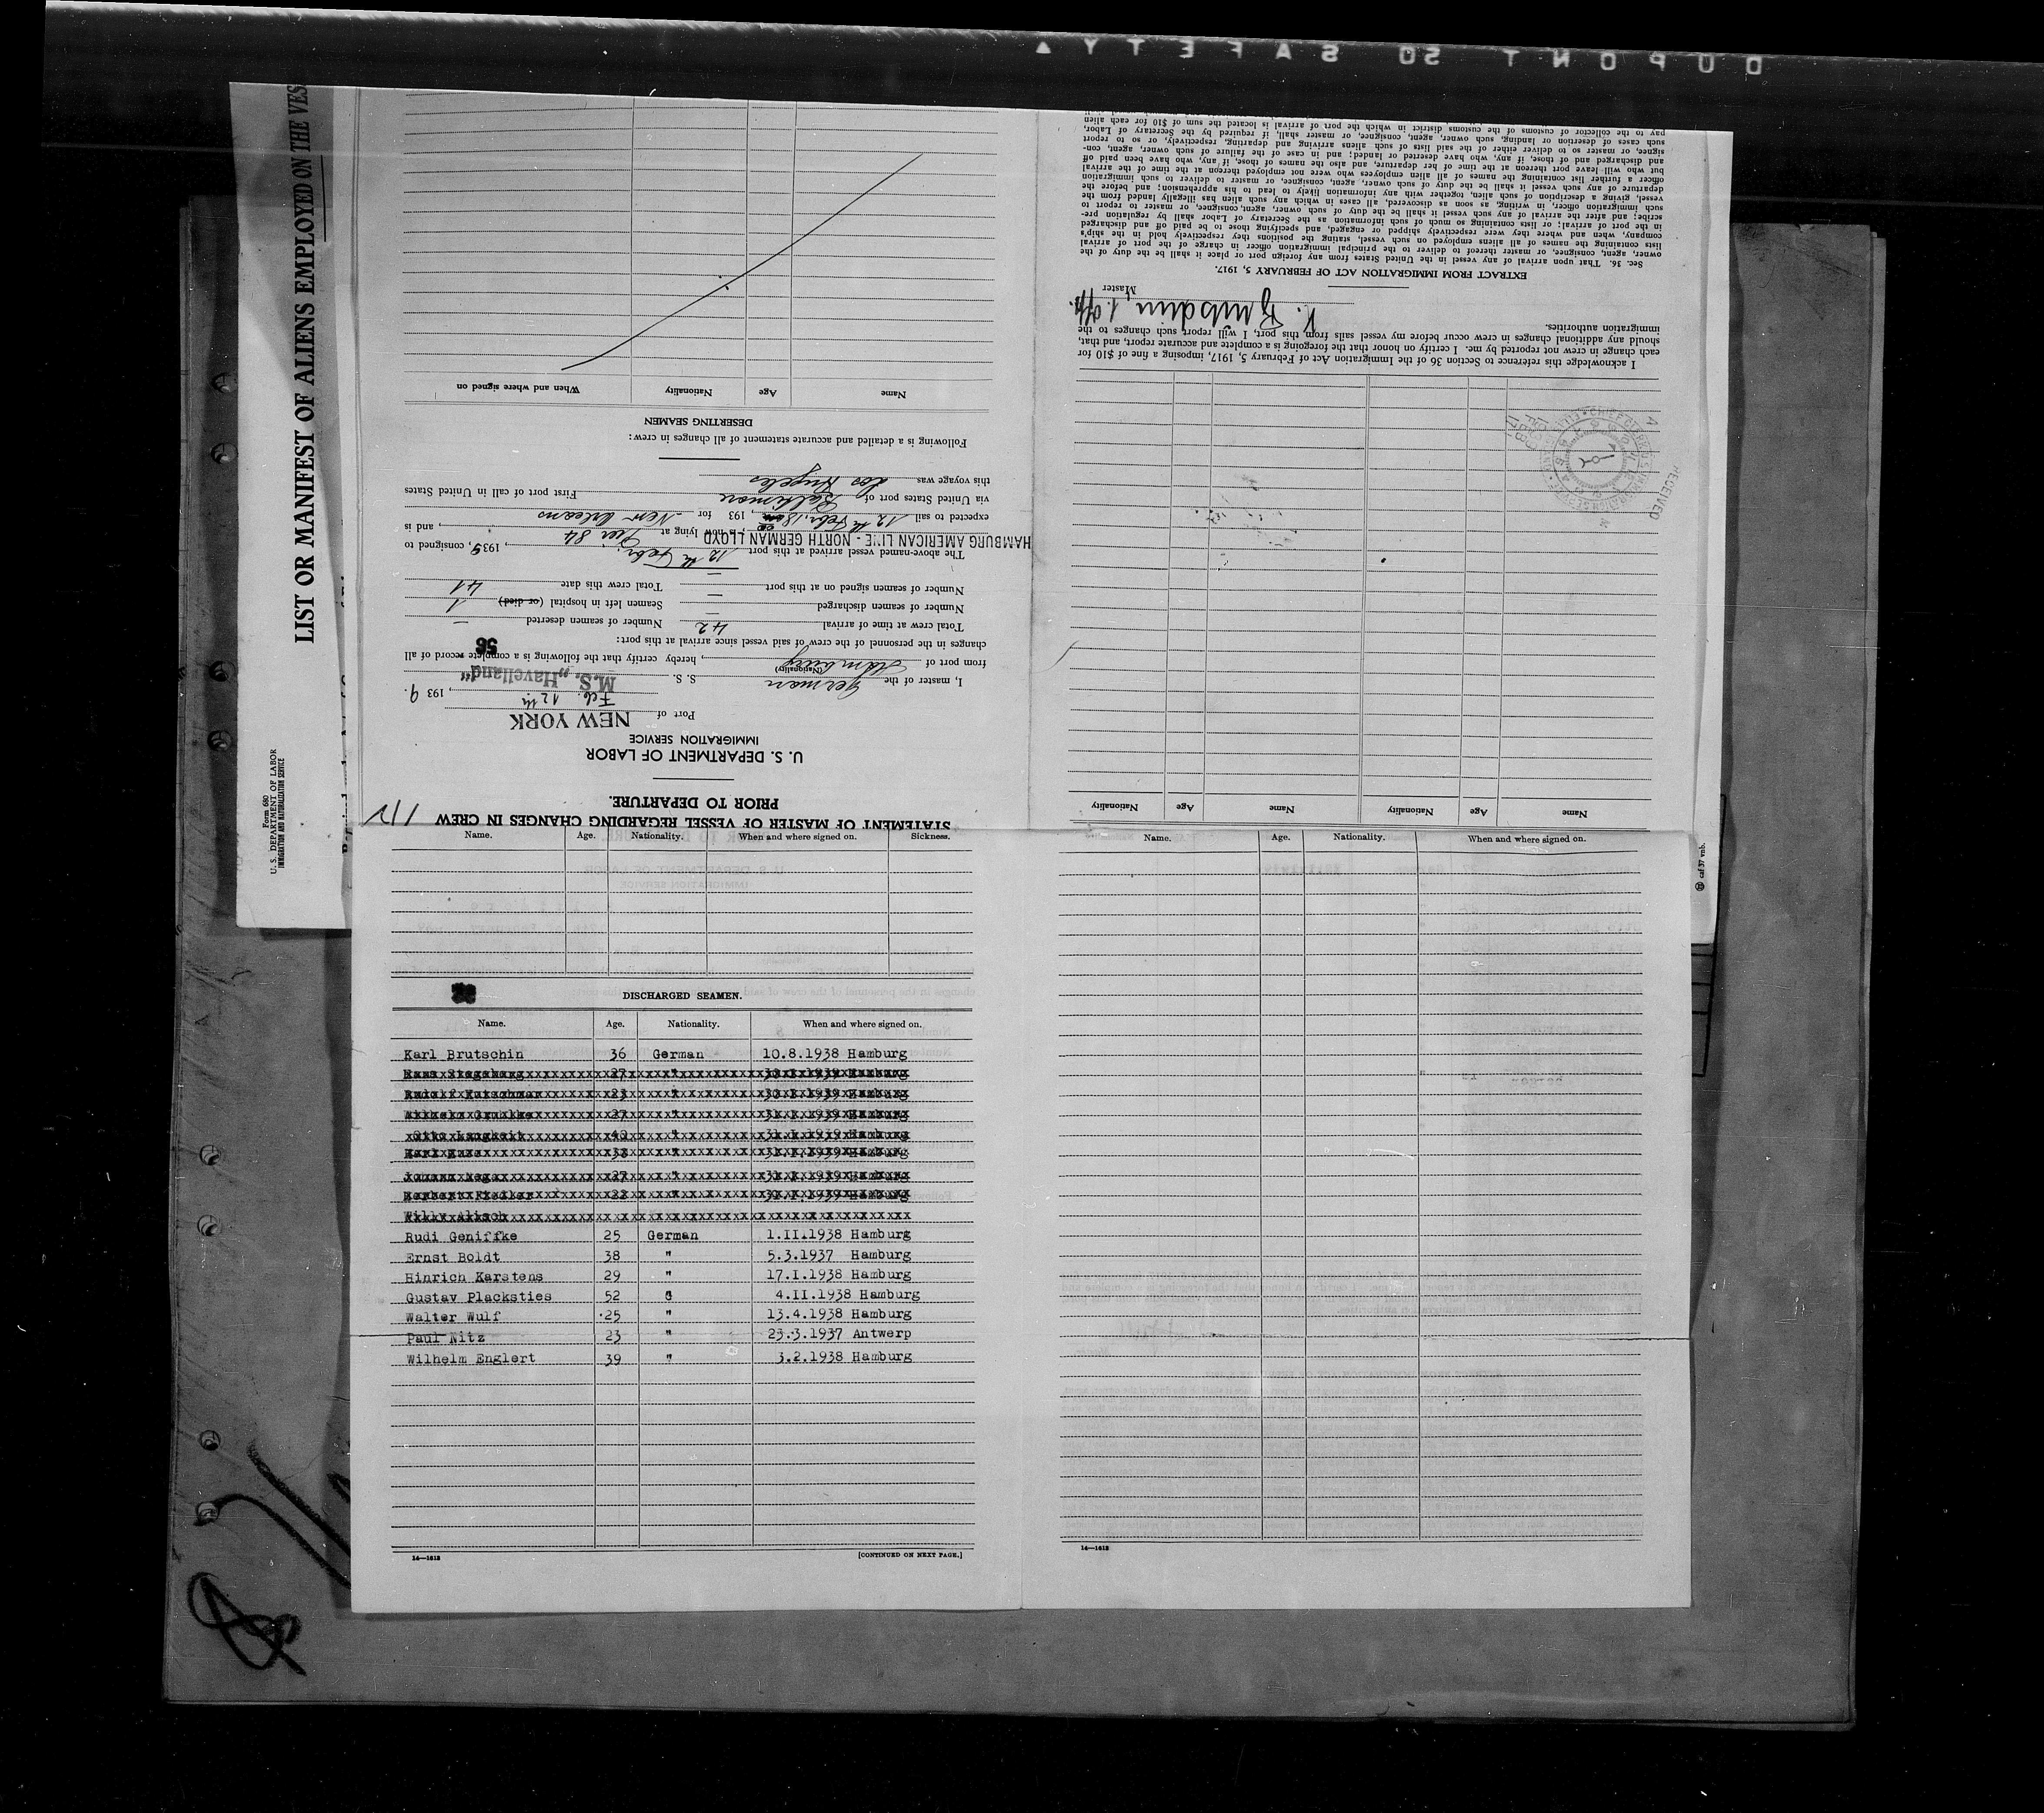 DUPONT 50 SAFETY ▲
Form 680
U. S. DEPARTMENT OF LABOR
IMMIGRATION AND NATURALIZATION SERVICE
LIST OR MANIFEST OF ALIENS EMPLOYED ON THE VES
STATEMENT OF MASTER OF VESSEL REGARDING CHANGES IN CREW
PRIOR TO DEPARTURE.
U. S. DEPARTMENT OF LABOR
IMMIGRATION SERVICE
Port of NEW YORK
Feb. 12th, 1939.
I, master of the German S. S. M.S. „Havelland“
(Nationality)
from port of Hamburg, hereby certify that the following is a complete record of all
56
changes in the personnel of the crew of said vessel since arrival at this port:
Total crew at time of arrival 42 Number of seamen deserted —
Number of seamen discharged — Seamen left in hospital (or died) 1
Number of seamen signed on at this port — Total crew this date 41
The above-named vessel arrived at this port 12th Febr., 1939, consigned to
HAMBURG AMERICAN LINE - NORTH GERMAN LLOYD, is now lying at Pier 84, and is
expected to sail 12th Febr. 18, 193 for New Orleans
via United States port of Baltimore First port of call in United States
this voyage was Los Angeles
Following is a detailed and accurate statement of all changes in crew:
DESERTING SEAMEN
Name Age Nationality When and where signed on
Name Age Nationality Name Age Nationality
RECEIVED
I acknowledge this reference to Section 36 of the Immigration Act of February 5, 1917, imposing a fine of $10 for
each change in crew not reported by me. I certify on honor that the foregoing is a complete and accurate report, and that,
should any additional changes in crew occur before my vessel sails from this port, I will report such changes to the
immigration authorities.
Master
EXTRACT FROM IMMIGRATION ACT OF FEBRUARY 5, 1917.
Sec. 36. That upon arrival of any vessel in the United States from any foreign port or place it shall be the duty of the
owner, agent, consignee, or master thereof to deliver to the principal immigration officer in charge of the port of arrival
lists containing the names of all aliens employed on such vessel, stating the positions they respectively hold in the ship's
company, when and where they were respectively shipped or engaged, and specifying those to be paid off and discharged
in the port of arrival; or lists containing so much of such information as the Secretary of Labor shall by regulation pre-
scribe; and after the arrival of any such vessel it shall be the duty of such owner, agent, consignee, or master to report to
such immigration officer, in writing, as soon as discovered, all cases in which any such alien has illegally landed from the
vessel, giving a description of such alien, together with any information likely to lead to his apprehension; and before the
departure of any such vessel it shall be the duty of such owner, agent, consignee, or master to deliver to such immigration
officer a further list containing the names of all alien employees who were not employed thereon at the time of the arrival
but who will leave port thereon at the time of her departure, and also the names of those, if any, who have been paid off
and discharged and of those, if any, who have deserted or landed; and in case of the failure of such owner, agent, con-
signee, or master so to deliver either of the said lists of such aliens arriving and departing, respectively, or so to report
such cases of desertion or landing, such owner, agent, consignee, or master shall, if required by the Secretary of Labor,
pay to the collector of customs of the customs district in which the port of arrival is located the sum of $10 for each alien
Name. Age. Nationality. When and where signed on. Sickness.
DISCHARGED SEAMEN.
Name. Age. Nationality. When and where signed on.
Karl Brutschin 36 German 10.8.1938 Hamburg
Rudi Geniffke 25 German 1.II.1938 Hamburg
Ernst Boldt 38 " 5.3.1937 Hamburg
Hinrich Karstens 29 " 17.I.1938 Hamburg
Gustav Placksties 52 " 4.II.1938 Hamburg
Walter Wulf 25 " 13.4.1938 Hamburg
Paul Nitz 23 " 23.3.1937 Antwerp
Wilhelm Englert 39 " 3.2.1938 Hamburg
14—1612 [CONTINUED ON NEXT PAGE.]
Name. Age. Nationality. When and where signed on.
14—1612
caf 37 vnb.